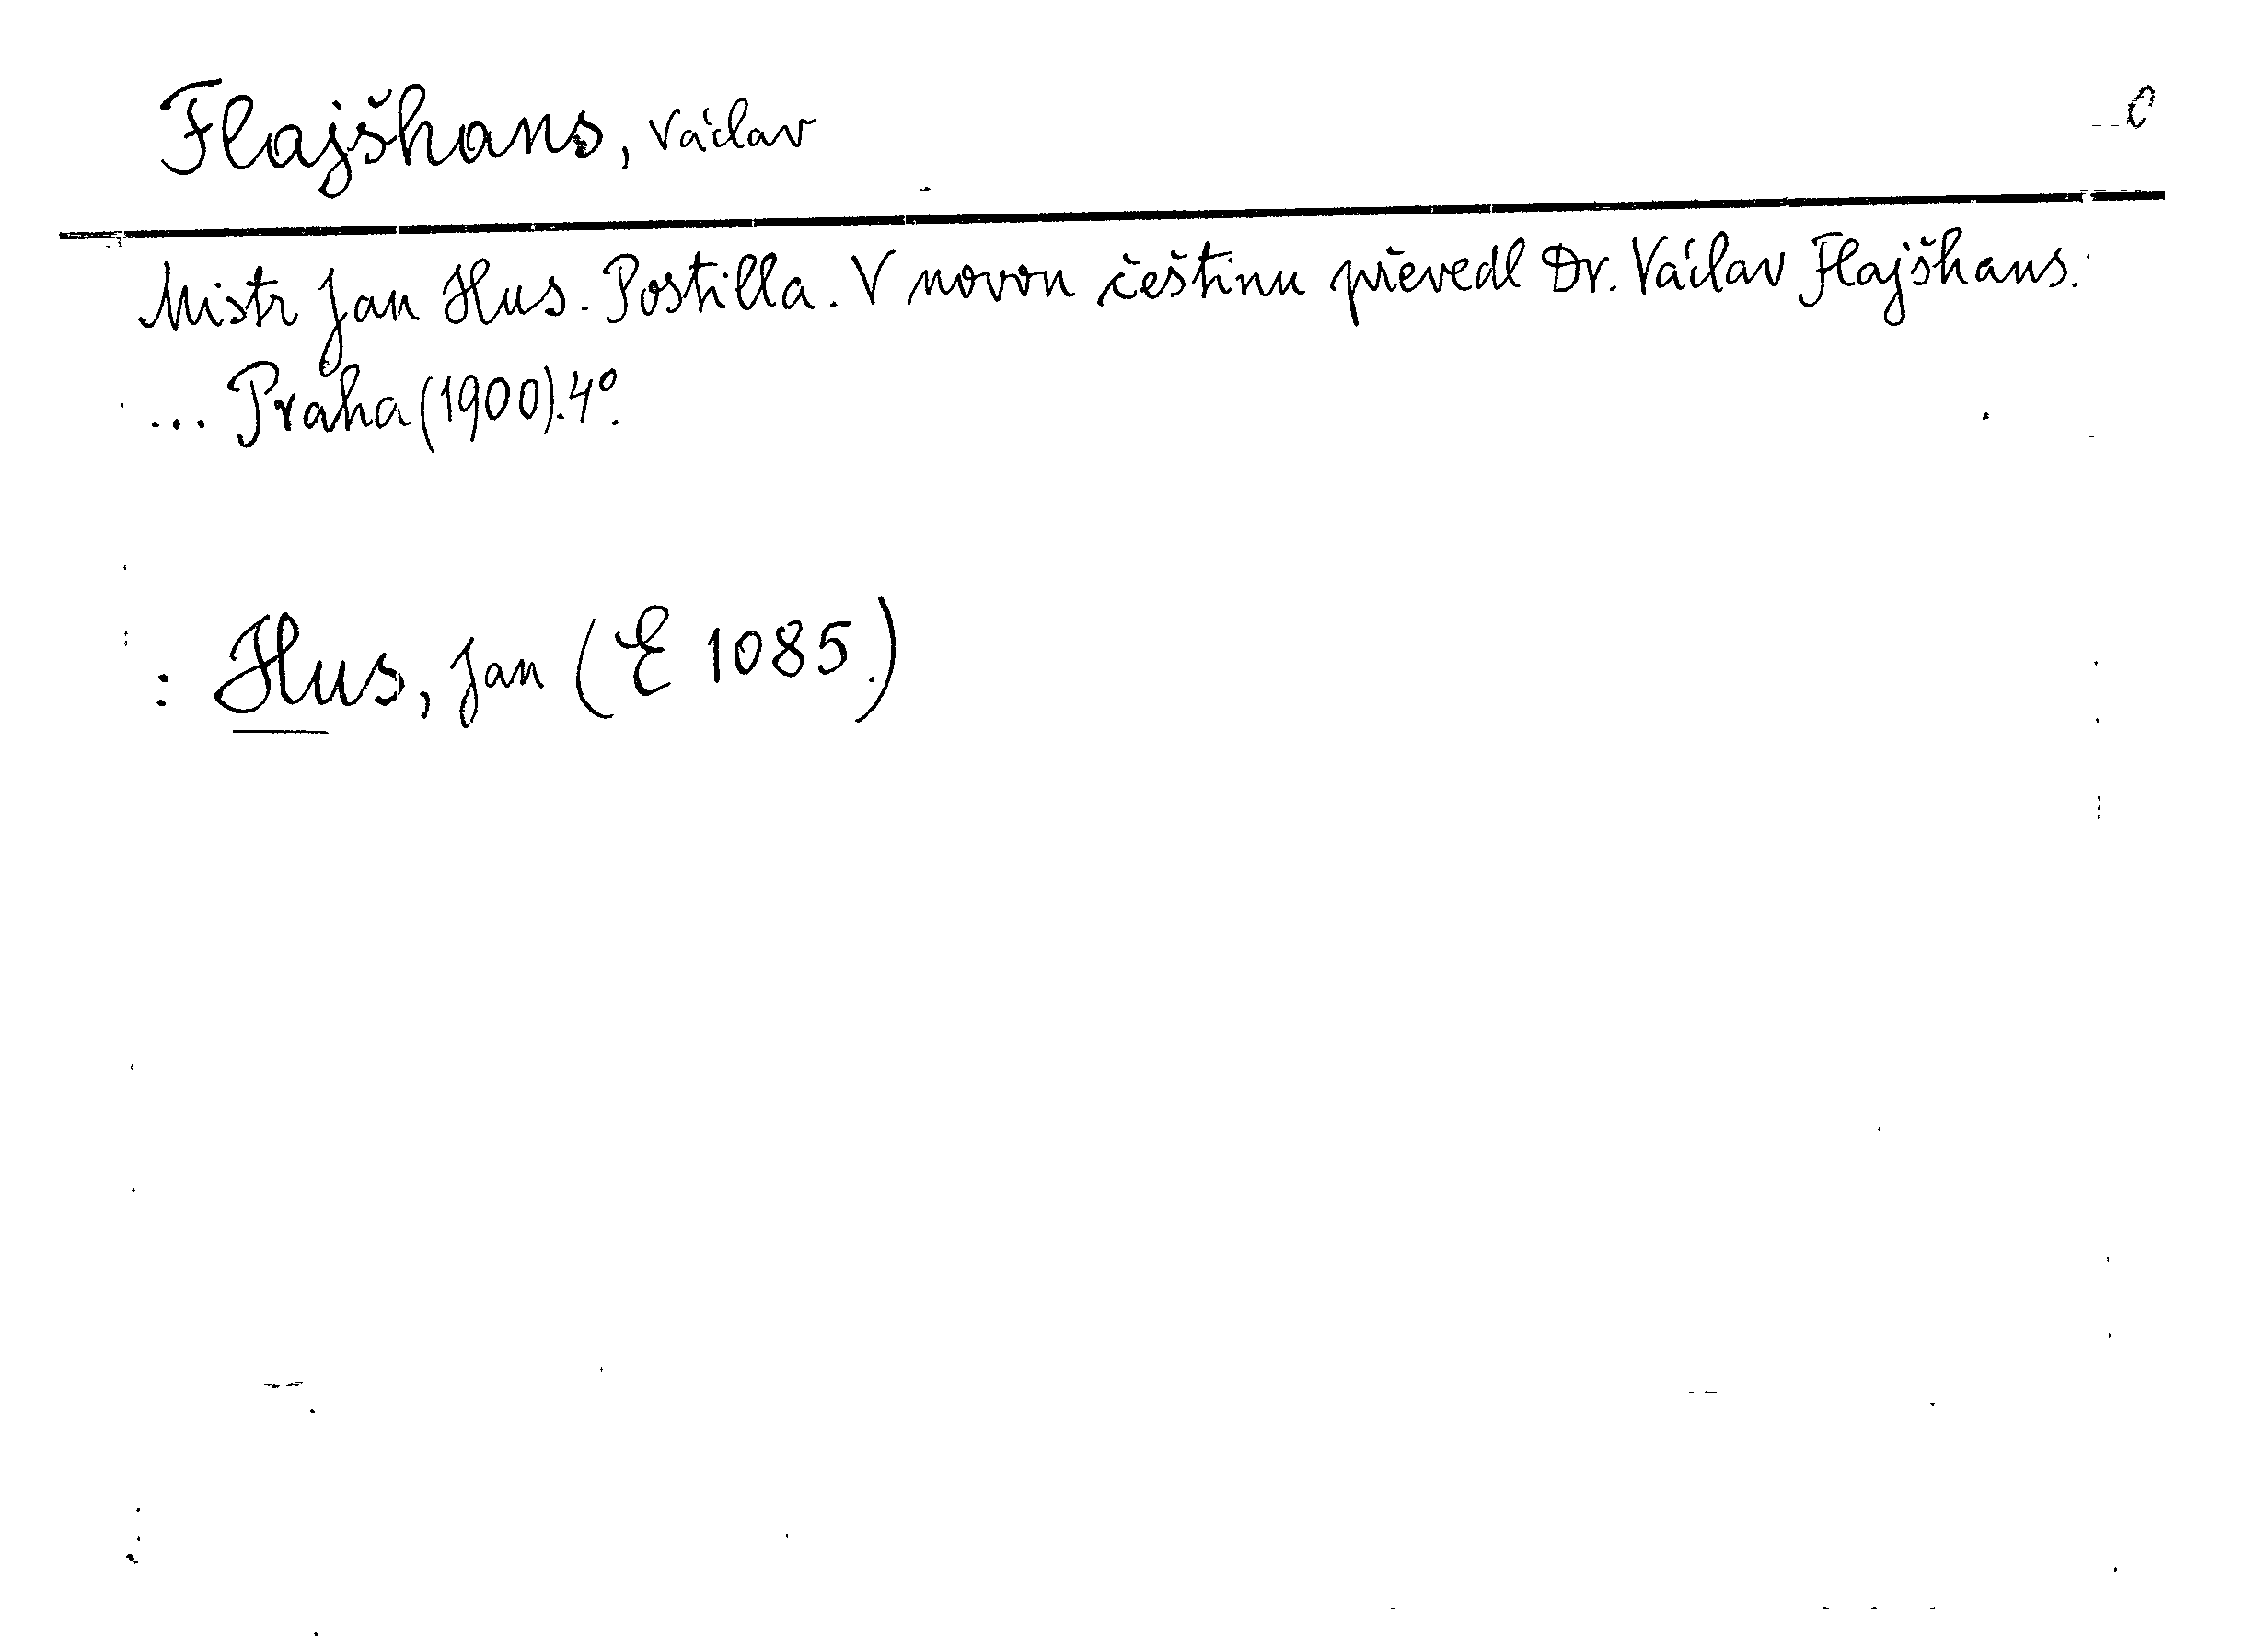 Flajšhans, Václav
C
Mistr Jan Hus. Postilla. V novou češtinu převedl Dr. Václav Flajšhans.
... Praha (1900). 4°.
: Hus, Jan (E 1085.)